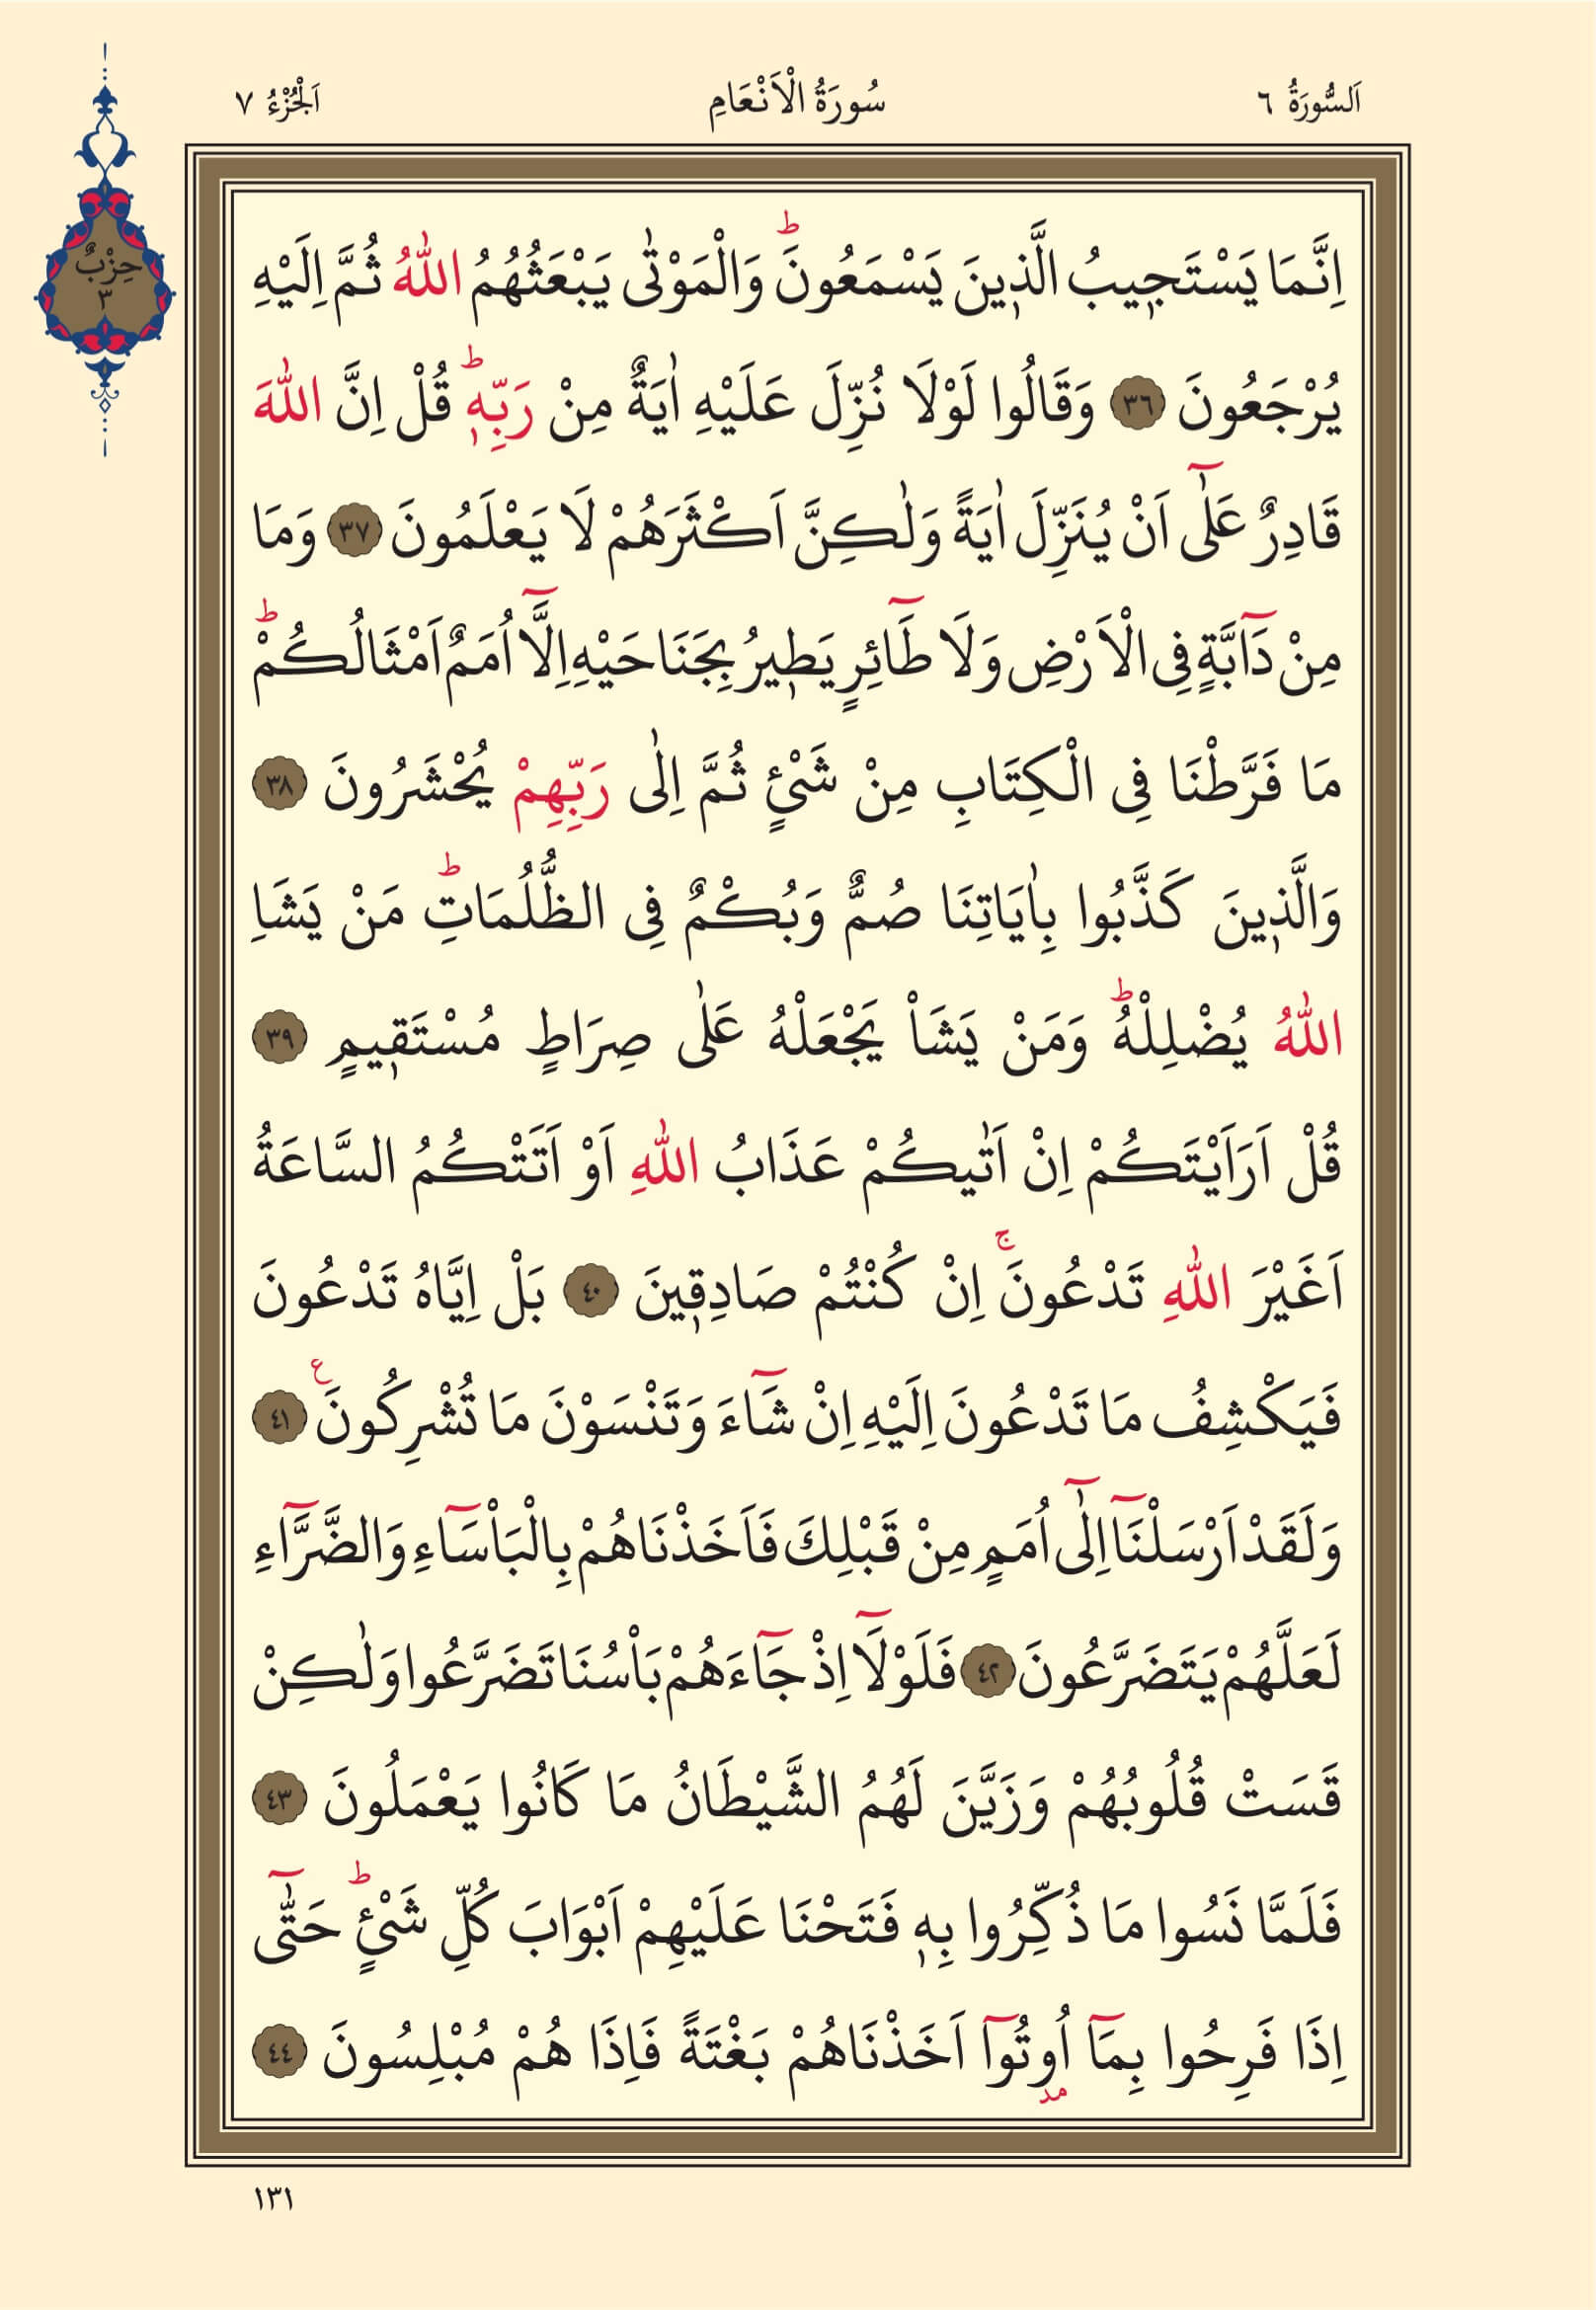 اَلسُّورَةُ ٦
سُورَةُ الْاَنْعَامِ
اَلْجُزْءُ ٧
حِزْبٌ
٣
اِنَّمَا يَسْتَجٖيبُ الَّذٖينَ يَسْمَعُونَؕ وَالْمَوْتٰى يَبْعَثُهُمُ اللّٰهُ ثُمَّ اِلَيْهِ
يُرْجَعُونَ ﴿٣٦﴾ وَقَالُوا لَوْلَا نُزِّلَ عَلَيْهِ اٰيَةٌ مِنْ رَبِّهٖؕ قُلْ اِنَّ اللّٰهَ
قَادِرٌ عَلٰٓى اَنْ يُنَزِّلَ اٰيَةً وَلٰكِنَّ اَكْثَرَهُمْ لَا يَعْلَمُونَ ﴿٣٧﴾ وَمَا
مِنْ دَٓابَّةٍ فِى الْاَرْضِ وَلَا طَٓائِرٍ يَطٖيرُ بِجَنَاحَيْهِ اِلَّٓا اُمَمٌ اَمْثَالُكُمْؕ
مَا فَرَّطْنَا فِى الْكِتَابِ مِنْ شَىْءٍ ثُمَّ اِلٰى رَبِّهِمْ يُحْشَرُونَ ﴿٣٨﴾
وَالَّذٖينَ كَذَّبُوا بِاٰيَاتِنَا صُمٌّ وَبُكْمٌ فِى الظُّلُمَاتِؕ مَنْ يَشَاِ
اللّٰهُ يُضْلِلْهُؕ وَمَنْ يَشَاْ يَجْعَلْهُ عَلٰى صِرَاطٍ مُسْتَقٖيمٍ ﴿٣٩﴾
قُلْ اَرَاَيْتَكُمْ اِنْ اَتٰيكُمْ عَذَابُ اللّٰهِ اَوْ اَتَتْكُمُ السَّاعَةُ
اَغَيْرَ اللّٰهِ تَدْعُونَۚ اِنْ كُنْتُمْ صَادِقٖينَ ﴿٤٠﴾ بَلْ اِيَّاهُ تَدْعُونَ
فَيَكْشِفُ مَا تَدْعُونَ اِلَيْهِ اِنْ شَٓاءَ وَتَنْسَوْنَ مَا تُشْرِكُونَ ع ﴿٤١﴾
وَلَقَدْ اَرْسَلْنَٓا اِلٰٓى اُمَمٍ مِنْ قَبْلِكَ فَاَخَذْنَاهُمْ بِالْبَاْسَٓاءِ وَالضَّرَّٓاءِ
لَعَلَّهُمْ يَتَضَرَّعُونَ ﴿٤٢﴾ فَلَوْلَٓا اِذْ جَٓاءَهُمْ بَاْسُنَا تَضَرَّعُوا وَلٰكِنْ
قَسَتْ قُلُوبُهُمْ وَزَيَّنَ لَهُمُ الشَّيْطَانُ مَا كَانُوا يَعْمَلُونَ ﴿٤٣﴾
فَلَمَّا نَسُوا مَا ذُكِّرُوا بِهٖ فَتَحْنَا عَلَيْهِمْ اَبْوَابَ كُلِّ شَىْءٍؕ حَتّٰٓى
اِذَا فَرِحُوا بِمَٓا اُو۫تُٓوا اَخَذْنَاهُمْ بَغْتَةً فَاِذَا هُمْ مُبْلِسُونَ ﴿٤٤﴾
مد
١٣١